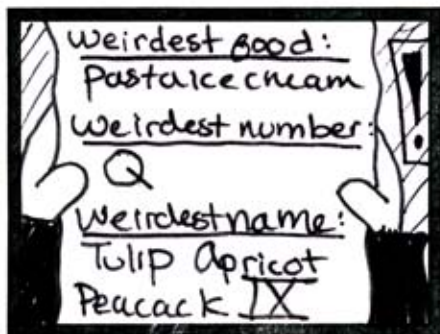 Weirdest food:
Pastaicecream
Weirdest number:
Q
Weirdest name:
Tulip Apricot
Peacack IX